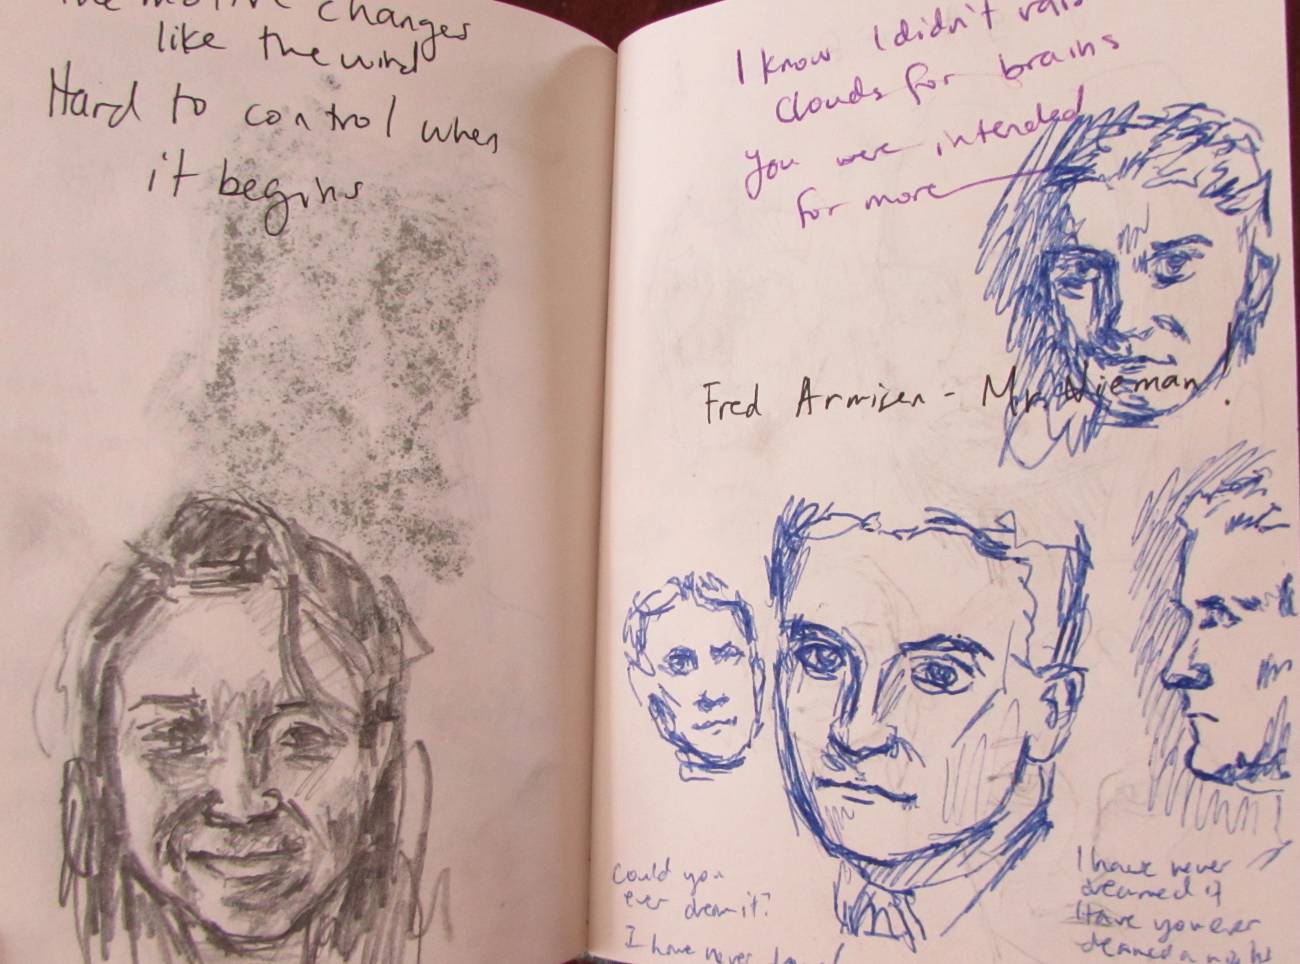 the motive changes
like the wind
Hard to control when
it begins
I know I didn't rais
clouds for brains
you were intended
for more
Fred Armisen - Mr. Nieman!
Could you
ever dream it?
I have never
I have never
dreamed it
Have you ever
dreamed a night